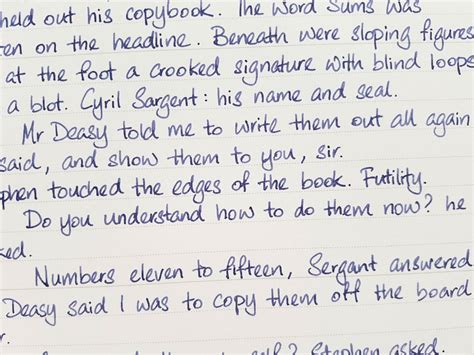 held out his copybook. The word Sums was
en on the headline. Beneath were sloping figures
at the foot a crooked signature with blind loops
a blot. Cyril Sargent: his name and seal.
Mr Deasy told me to write them out all again
said, and show them to you, sir.
phen touched the edges of the book. Futility.
Do you understand how to do them now? he
ked.
Numbers eleven to fifteen, Sergant answered
Deasy said I was to copy them off the board
r.
Stephen asked.